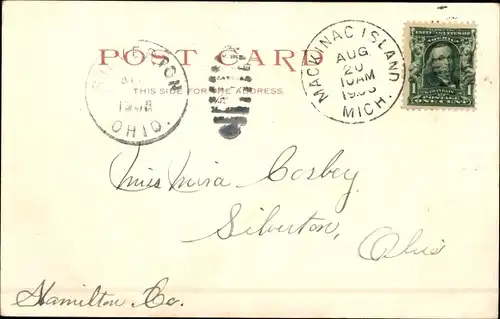 POST CARD
THIS SIDE FOR THE ADDRESS.
OHIO.
MACKINAC ISLAND
AUG
20
10AM
MICH.
UNITED STATES OF
AMERICA
POSTAGE
1 1
ONE CENT
Miss Mira Cosbey
Silverton,
Ohio
Hamilton Co.